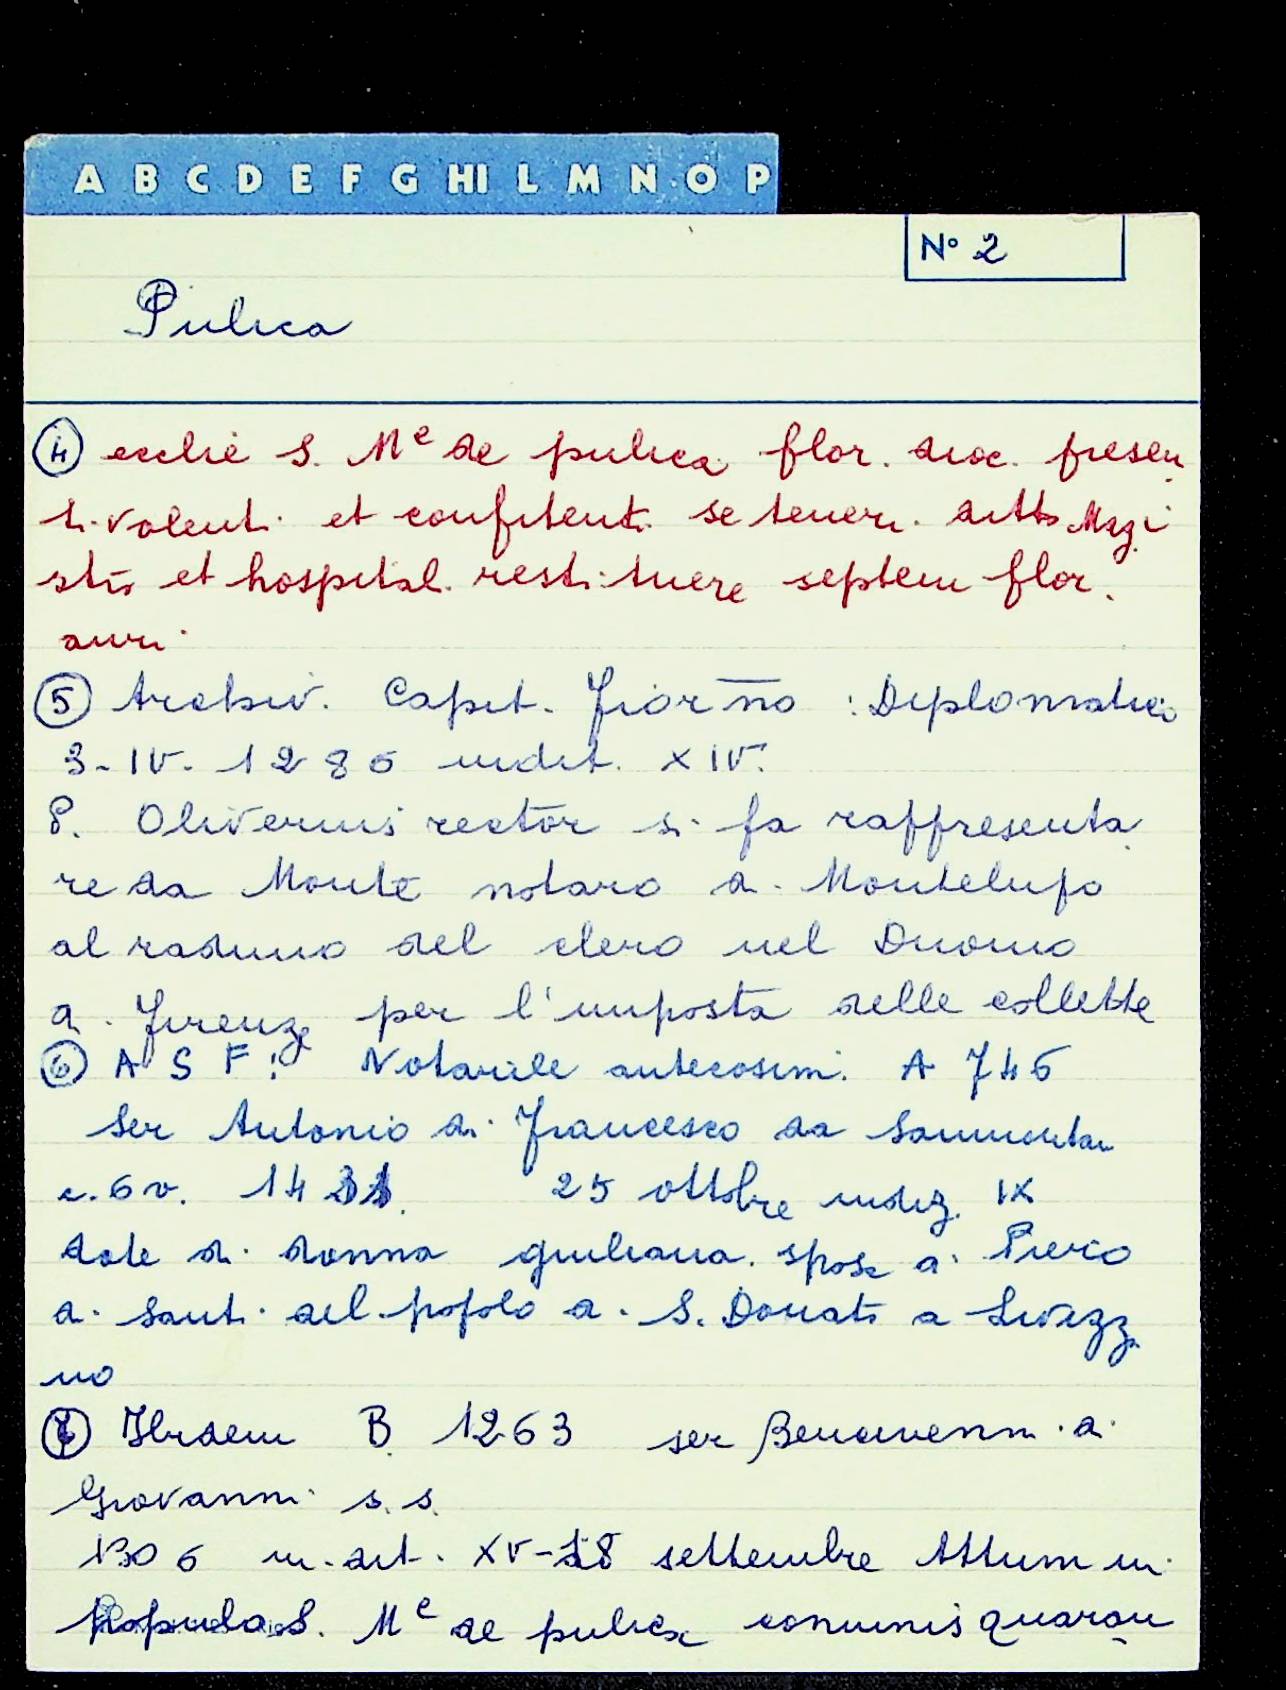 A B C D E F G HI L M N O P
N° 2
Pulica
④ ecclie S. Me de pulica flor. dioc. presen
ti. volenti et confitenti se teneri ditto Magi
stro et hospital. restituere septem flor.
auri.
⑤ Archiv. Capit. Fiorno : Diplomatico
3-IV-1286 indit. XIV.
P. Oliverius rector si fa rappresenta
re da Monte notaro di Montelupo
al raduno del clero nel Duomo
di Firenze per l'imposta delle collette
⑥ A S F: Notarile antecosim. A 746
Ser Antonio di Francesco da Sammontan
c. 6 v. 1431. 25 ottobre indiz. IX
dote di donna giuliana. sposa di Piero
di Santi del popolo di S. Donato a Livizz
no
⑦ Ibidem B 1263 ser Bencivenni di
Giovanni s. s.
1306 in.dit. XV-18 settembre Attum in
Populo S. Me de pulica comunis quaran